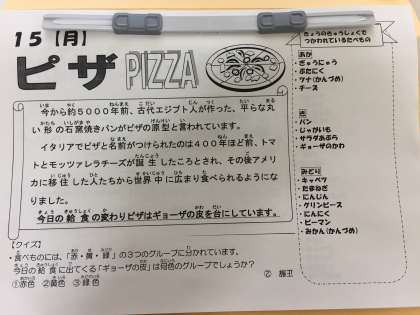 15【月】
ピザ PIZZA
今から約5000年前、古代エジプト人が作った、平らな丸
い形の石窯焼きパンがピザの原型と言われています。
イタリアでピザと名前がつけられたのは400年ほど前、トマ
トとモッツァレラチーズが誕生したころとされ、その後アメリ
カに移住した人たちから世界中に広まり食べられるようにな
りました。
今日の給食の変わりピザはギョーザの皮を台にしています。
【クイズ】
・食べものには、「赤・黄・緑」の3つのグループに分かれています。
今日の給食に出てくる「ギョーザの皮」は何色のグループでしょうか?
①赤色 ②黄色 ③緑色
きょうのきゅうしょくで
つかわれているたべもの
あか
・ぎゅうにゅう
・ぶたにく
・ツナ(かんづめ)
・チーズ
き
・パン
・じゃがいも
・サラダあぶら
・ギョーザのかわ
みどり
・キャベツ
・たまねぎ
・にんじん
・グリンピース
・にんにく
・ピーマン
・みかん(かんづめ)